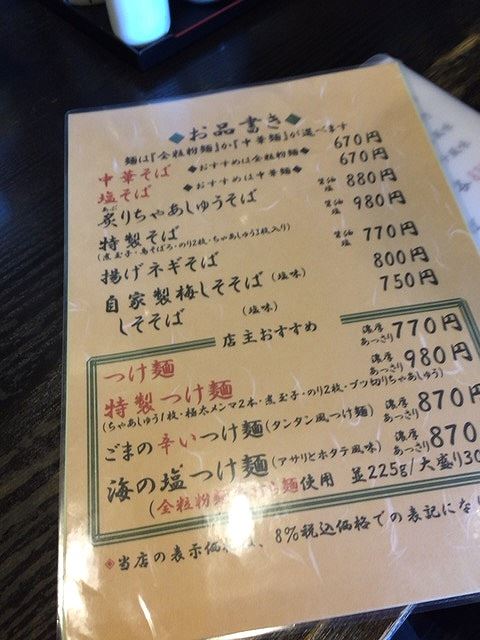 ◆お品書き◆
麺は『全粒粉麺』か『中華麺』が選べます
中華そば ◆おすすめは全粒粉麺◆ 670円
塩そば ◆おすすめは中華麺◆ 670円
炙りちゃあしゅうそば 醤油 塩 880円
特製そば 醤油 塩 980円
(煮玉子・鳥そぼろ・のり2枚・ちゃあしゅう3枚入り)
揚げネギそば 醤油 塩 770円
自家製梅しそそば(塩味) 800円
しそそば (塩味) 750円
店主おすすめ
つけ麺 濃厚 あっさり 770円
特製つけ麺 濃厚 あっさり 980円
(ちゃあしゅう1枚・極太メンマ2本・煮玉子・のり2枚・ブツ切りちゃあしゅう)
ごまの辛いつけ麺(タンタン風つけ麺) 濃厚 あっさり 870円
海の塩つけ麺(アサリとホタテ風味) 濃厚 あっさり 870
(全粒粉麺 麺使用 並225g/大盛り30
◈当店の表示価 、8%税込価格での表記にな